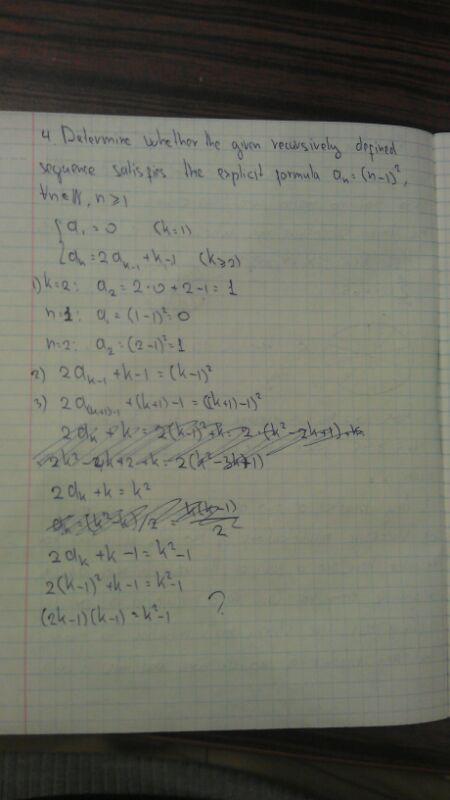 4. Determine whether the given recursively defined
sequence satisfies the explicit formula aₙ=(n-1)²,
∀n∈ℕ, n≥1
{a₁=0 (k=1)
{aₖ=2aₖ₋₁+k-1 (k≥2)
1) k=2: a₂=2·0+2-1=1
n=1: a₁=(1-1)²=0
n=2: a₂=(2-1)²=1
2) 2aₖ₋₁+k-1=(k-1)²
3) 2a₍ₖ₊₁₎₋₁+(k+1)-1=((k+1)-1)²
2aₖ+k=2(k-1)²+k=2·(k²-2k+1)+k=
2aₖ+k=k²
2aₖ+k-1=k²-1
2(k-1)²+k-1=k²-1
(2k-1)(k-1)=k²-1 ?